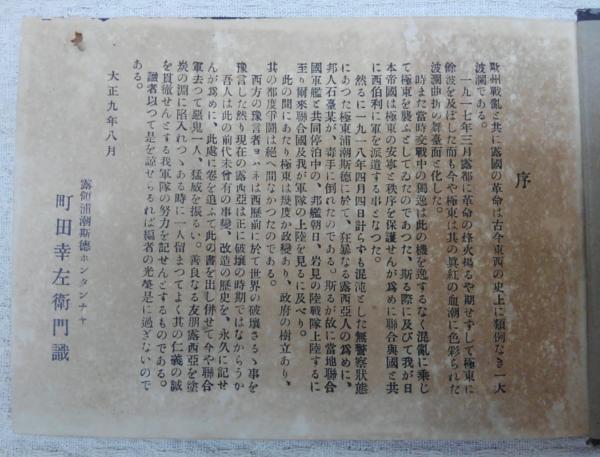 序
歐州戰亂と共に露國の革命は古今東西の史上に類例なき一大
波瀾である。
一九一七年三月露都に革命の烽火揚るや期せずして極東に
餘波を及ぼした而も今や極東は其の眞紅の血潮に色彩られた
波瀾曲折の舞臺面と化した。
時また當時交戰中の獨逸は此の機を逸するなく混亂に乗じ
て極東を襲ふとしてゐたのであつた、斯る際に及びて我が日
本帝國は極東の安寧と秩序を保護せんが爲めに聯合與國と共
に西伯利に軍を派遣する事となつた。
然るに一九一八年四月四日計らずも混沌とした無警察狀態
にあつた極東浦潮斯德に於て、狂暴なる露西亞人の爲めに、
邦人石臺某が、毒手に倒れたのである。斯るが故に當地聯合
國軍艦と共同停泊中の、邦艦朝日、岩見の陸戰隊上陸するに
至り爾來聯合國及我が軍隊の上陸を見るに及べり。
此の間にあたり極東は幾度か政變あり、政府の樹立あり、
其の都度爭鬪は絶へ間なかつたのである。
西方の豫言者ヨハネは西歷前に於て世界の破壊さるゝ事を
豫言した然り現在の露西亞は正に破壊の時期ではなからうか
吾人は此の前代未曾有の事變、改造の歷史を、永久に記せ
んが爲めに、此處に卷を追ふて此の書を出し併せて今や聯合
軍去つて惡鬼一人、猛威を振るい。善良なる友朋露西亞を塗
炭の淵に陷入れつゝある時に一人留まつてよく其の仁義の誠
を貫徹せんとする我軍隊の努力を記せんとするものである。
讀者以つて是を諒せらるれば編者の光榮是に過ぎないので
ある。
大正九年八月
露領浦潮斯德ホンタンチヤ
町田幸左衛門識